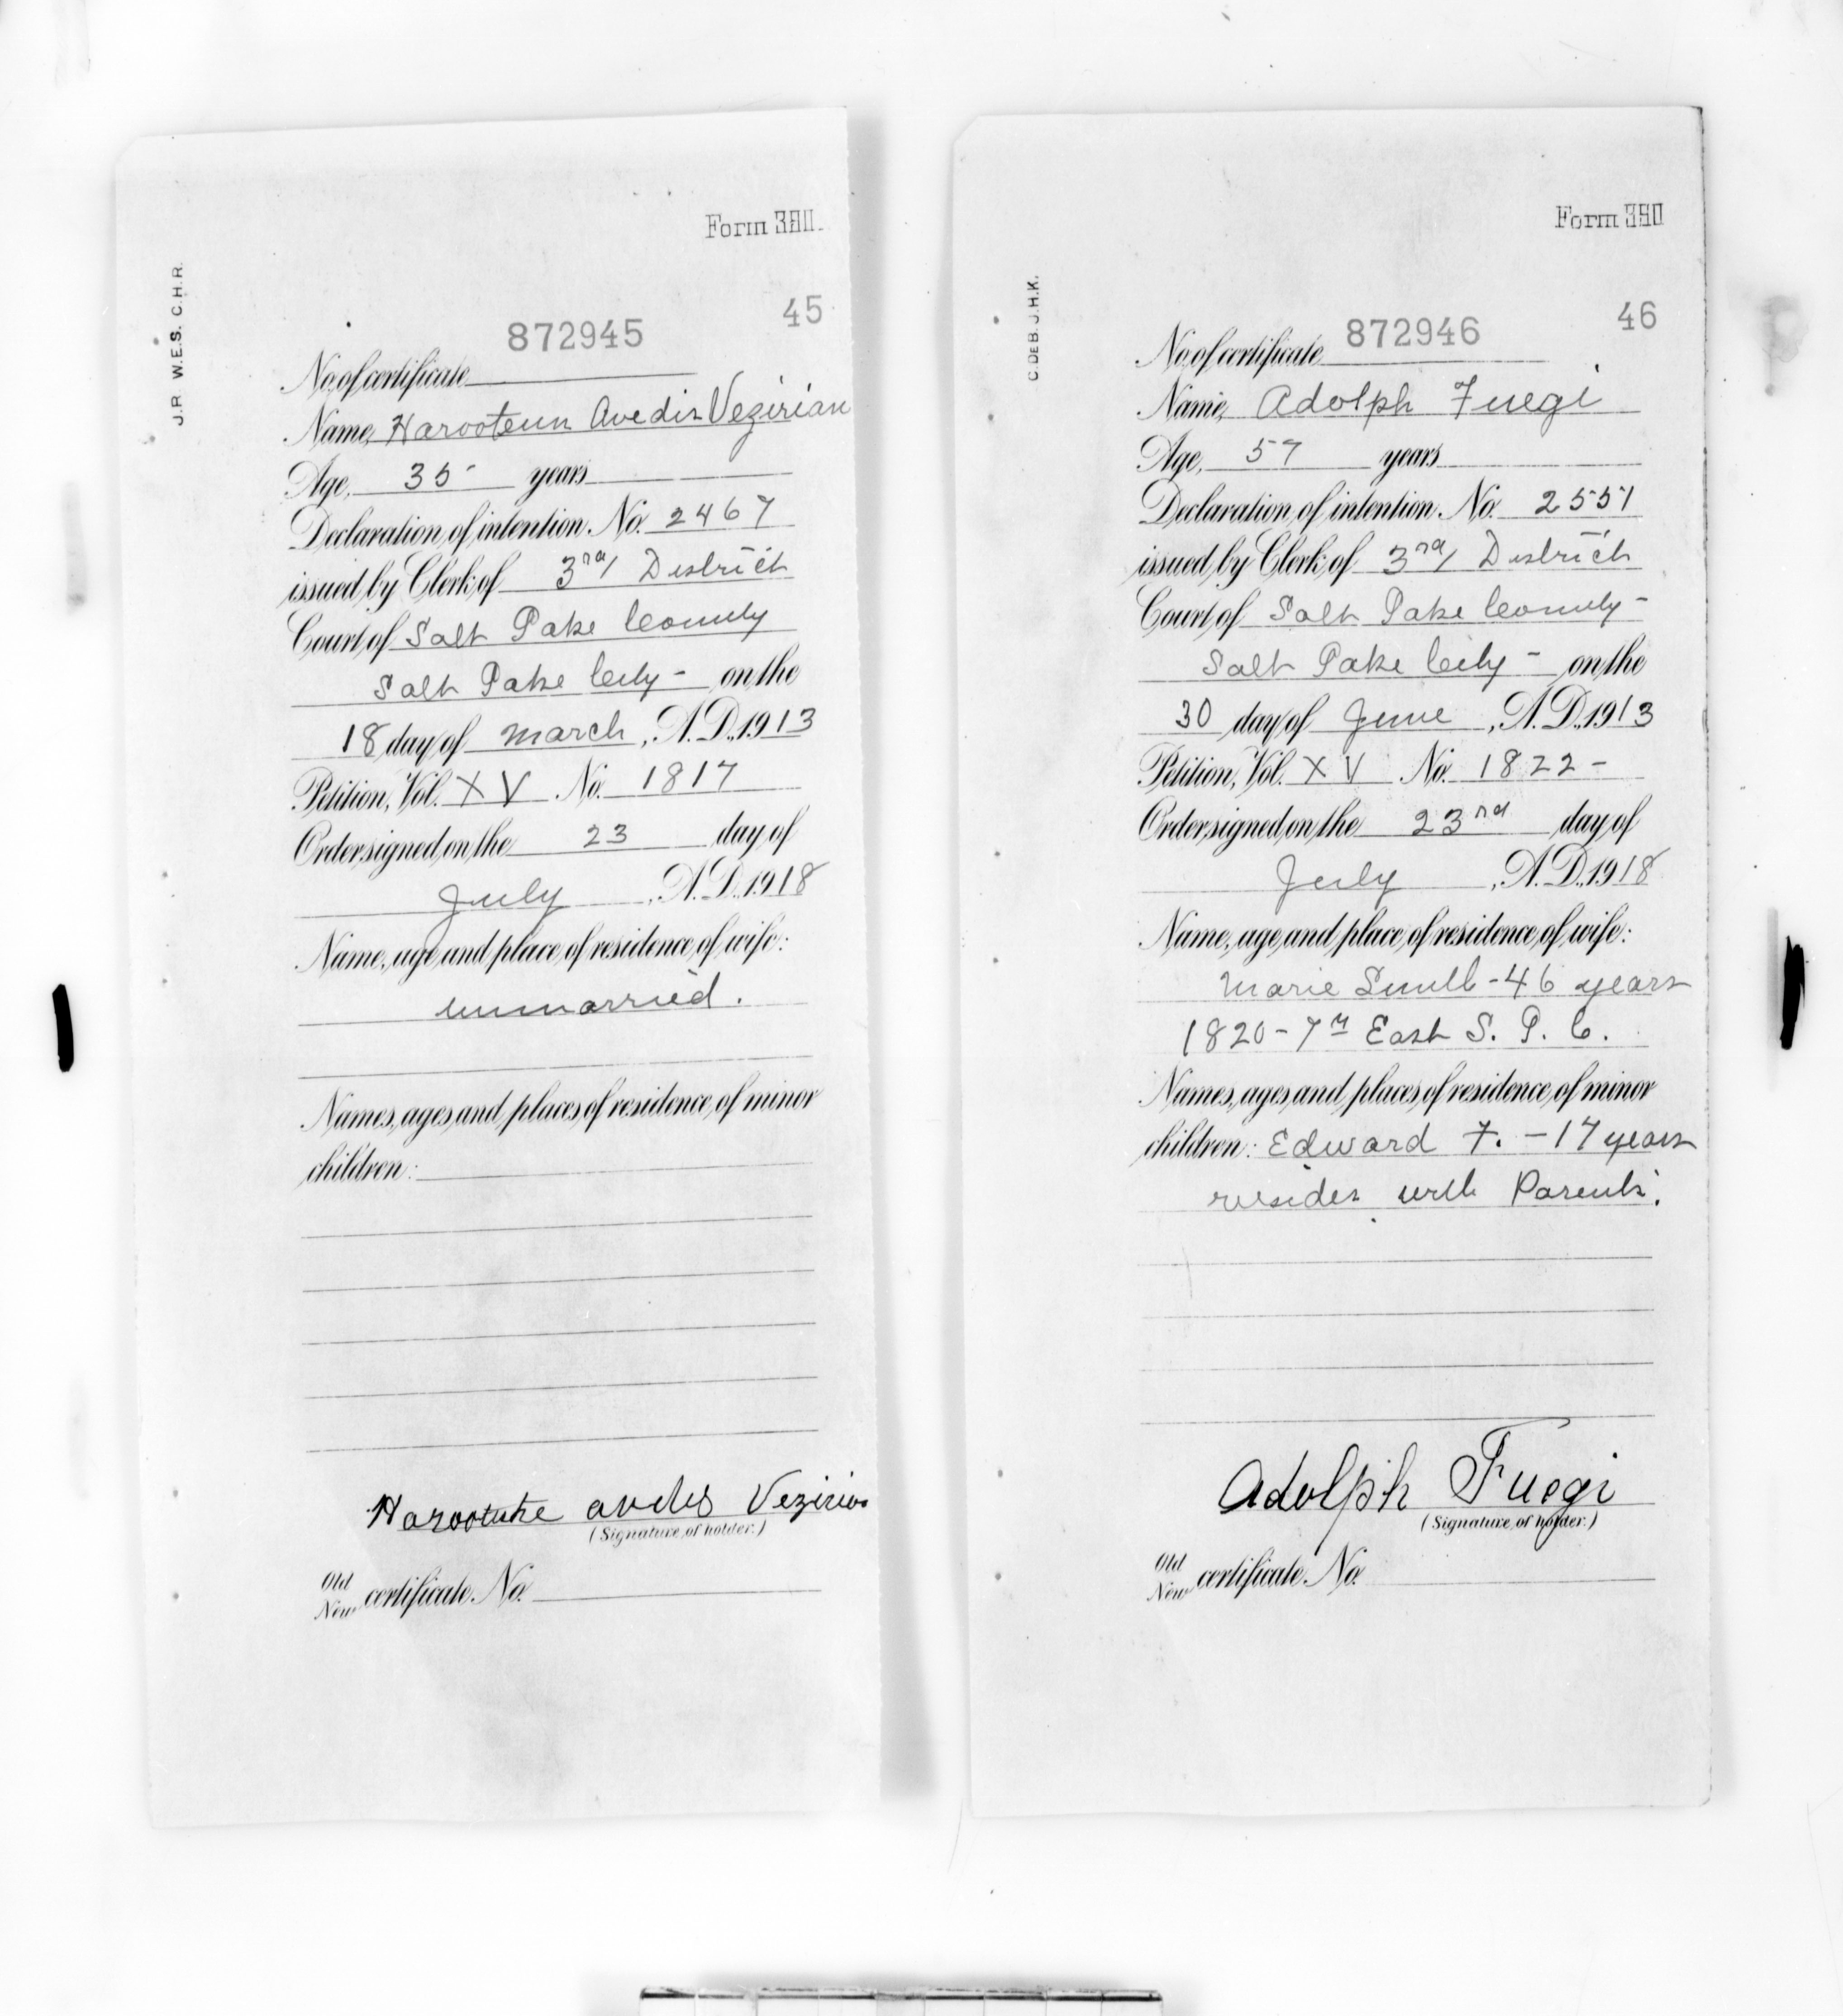 Form 380.
J.R. W.E.S. C.H.R.
45
872945
No. of certificate
Name, Harooteun Avedis Vezirian
Age, 35 years
Declaration of intention No. 2467
issued by Clerk of 3rd District
Court of Salt Lake County
Salt Lake City - on the
18 day of March, A.D. 1913
Petition, Vol. XV No. 1817
Order signed on the 23 day of
July, A.D. 1918
Name, age and place of residence of wife:
unmarried.
Names, ages and places of residence of minor
children:
Avedis Vezirian
(Signature of holder.)
Old
New certificate No.
Form 380
C.DEB. J.H.K.
46
872946
No. of certificate
Name, Adolph Fuegi
Age, 57 years
Declaration of intention No. 2551
issued by Clerk of 3rd District
Court of Salt Lake County -
Salt Lake City - on the
30 day of June, A.D. 1913
Petition, Vol. XV No. 1822 -
Order signed on the 23rd day of
July, A.D. 1918
Name, age and place of residence of wife:
Marie - 46 years
1820 - 7th East S. L. C.
Names, ages and places of residence of minor
children: Edward F. - 17 years
resides with Parents.
Adolph Fuegi
(Signature of holder.)
Old
New certificate No.